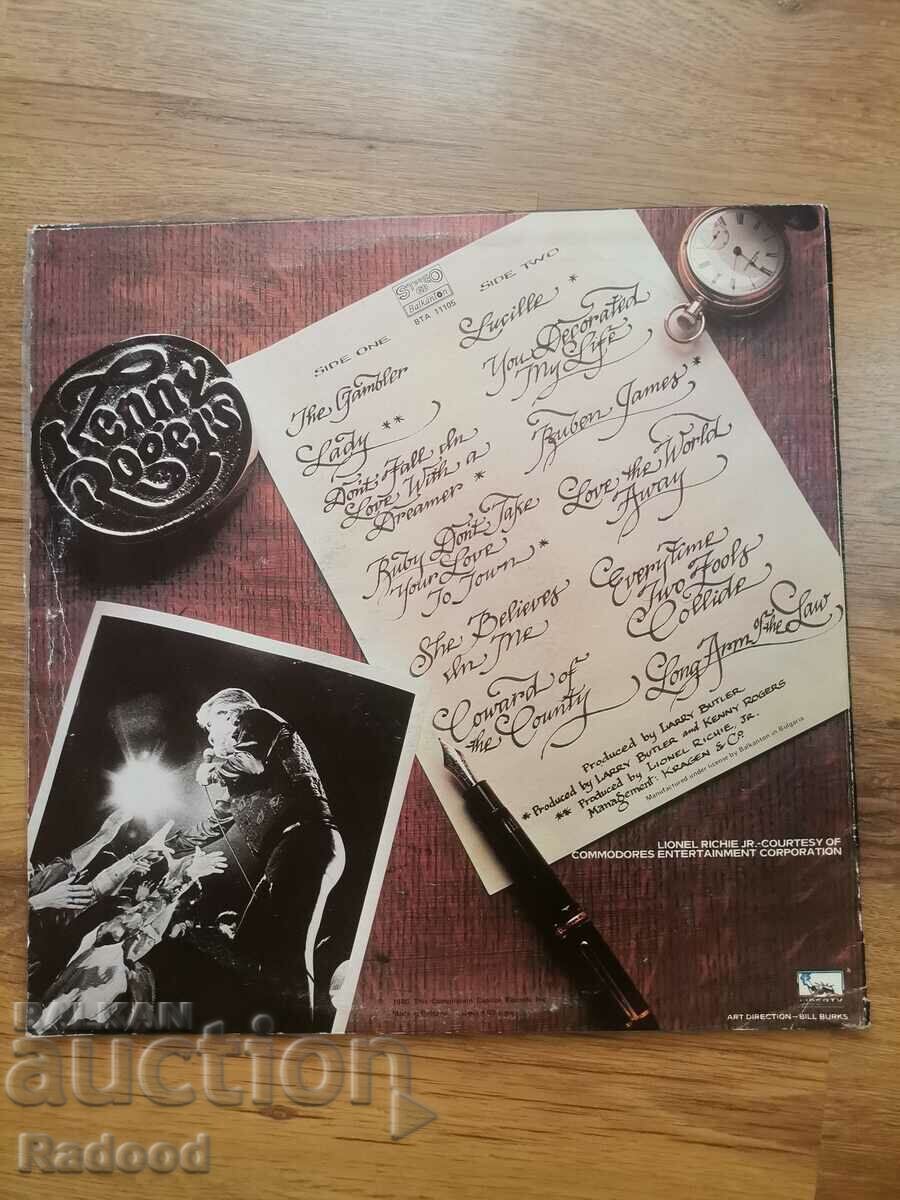 Kenny
Rogers
STEREO
Balkanton
BTA 11105
SIDE ONE
The Gambler
Lady **
Don't Fall In
Love With a
Dreamer *
Ruby Don't Take
Your Love
To Town *
She Believes
In Me
Coward of
the County
SIDE TWO
Lucille *
You Decorated
My Life
Reuben James *
Love the World
Away
Everytime
Two Fools
Collide
Long Arm of the Law
Produced by LARRY BUTLER
* Produced by LARRY BUTLER and KENNY ROGERS
** Produced by LIONEL RICHIE, JR.
Management: KRAGEN & CO.
Manufactured under license by Balkanton in Bulgaria
LIONEL RICHIE JR.-COURTESY OF
COMMODORES ENTERTAINMENT CORPORATION
1980 This Compilation Capitol Records Inc
LIBERTY
ART DIRECTION—BILL BURKS
BALKAN
auction
Radood